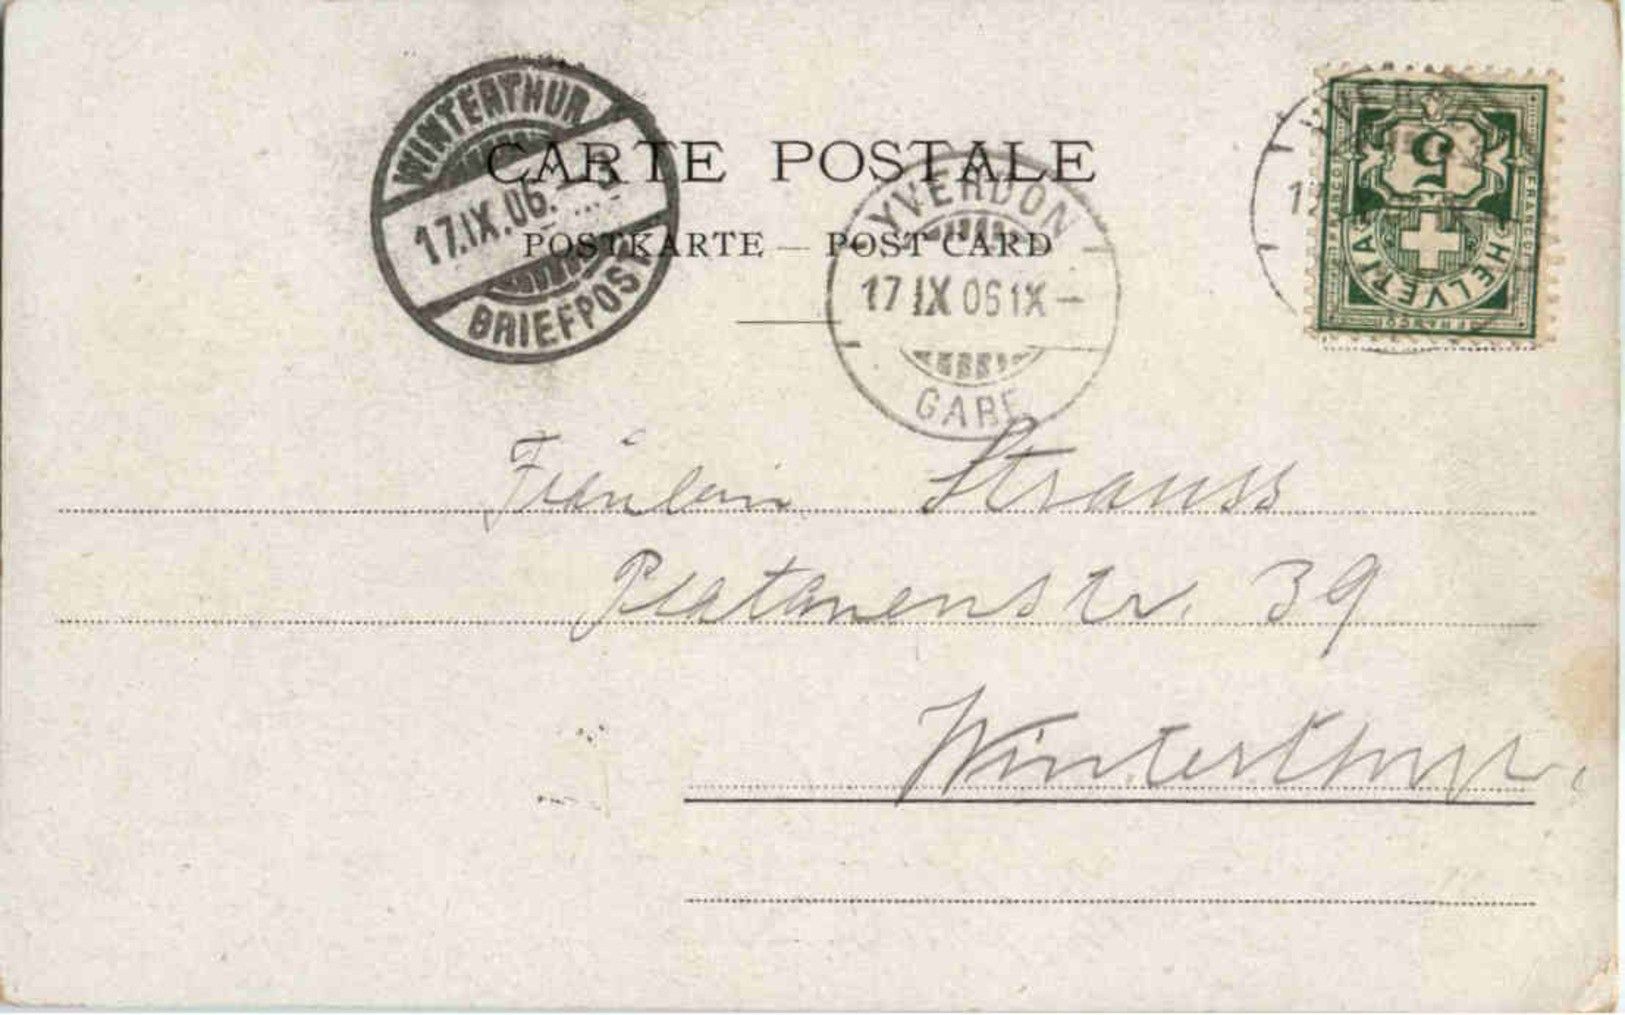 WINTERTHUR
17.IX.06.
BRIEFPOST
CARTE POSTALE
POSTKARTE — POST CARD
YVERDON
17 IX 06 IX –
GARE
5
HELVETIA
FRANCO
Fräulein Strauss
Platanenstr. 39
Winterthur.